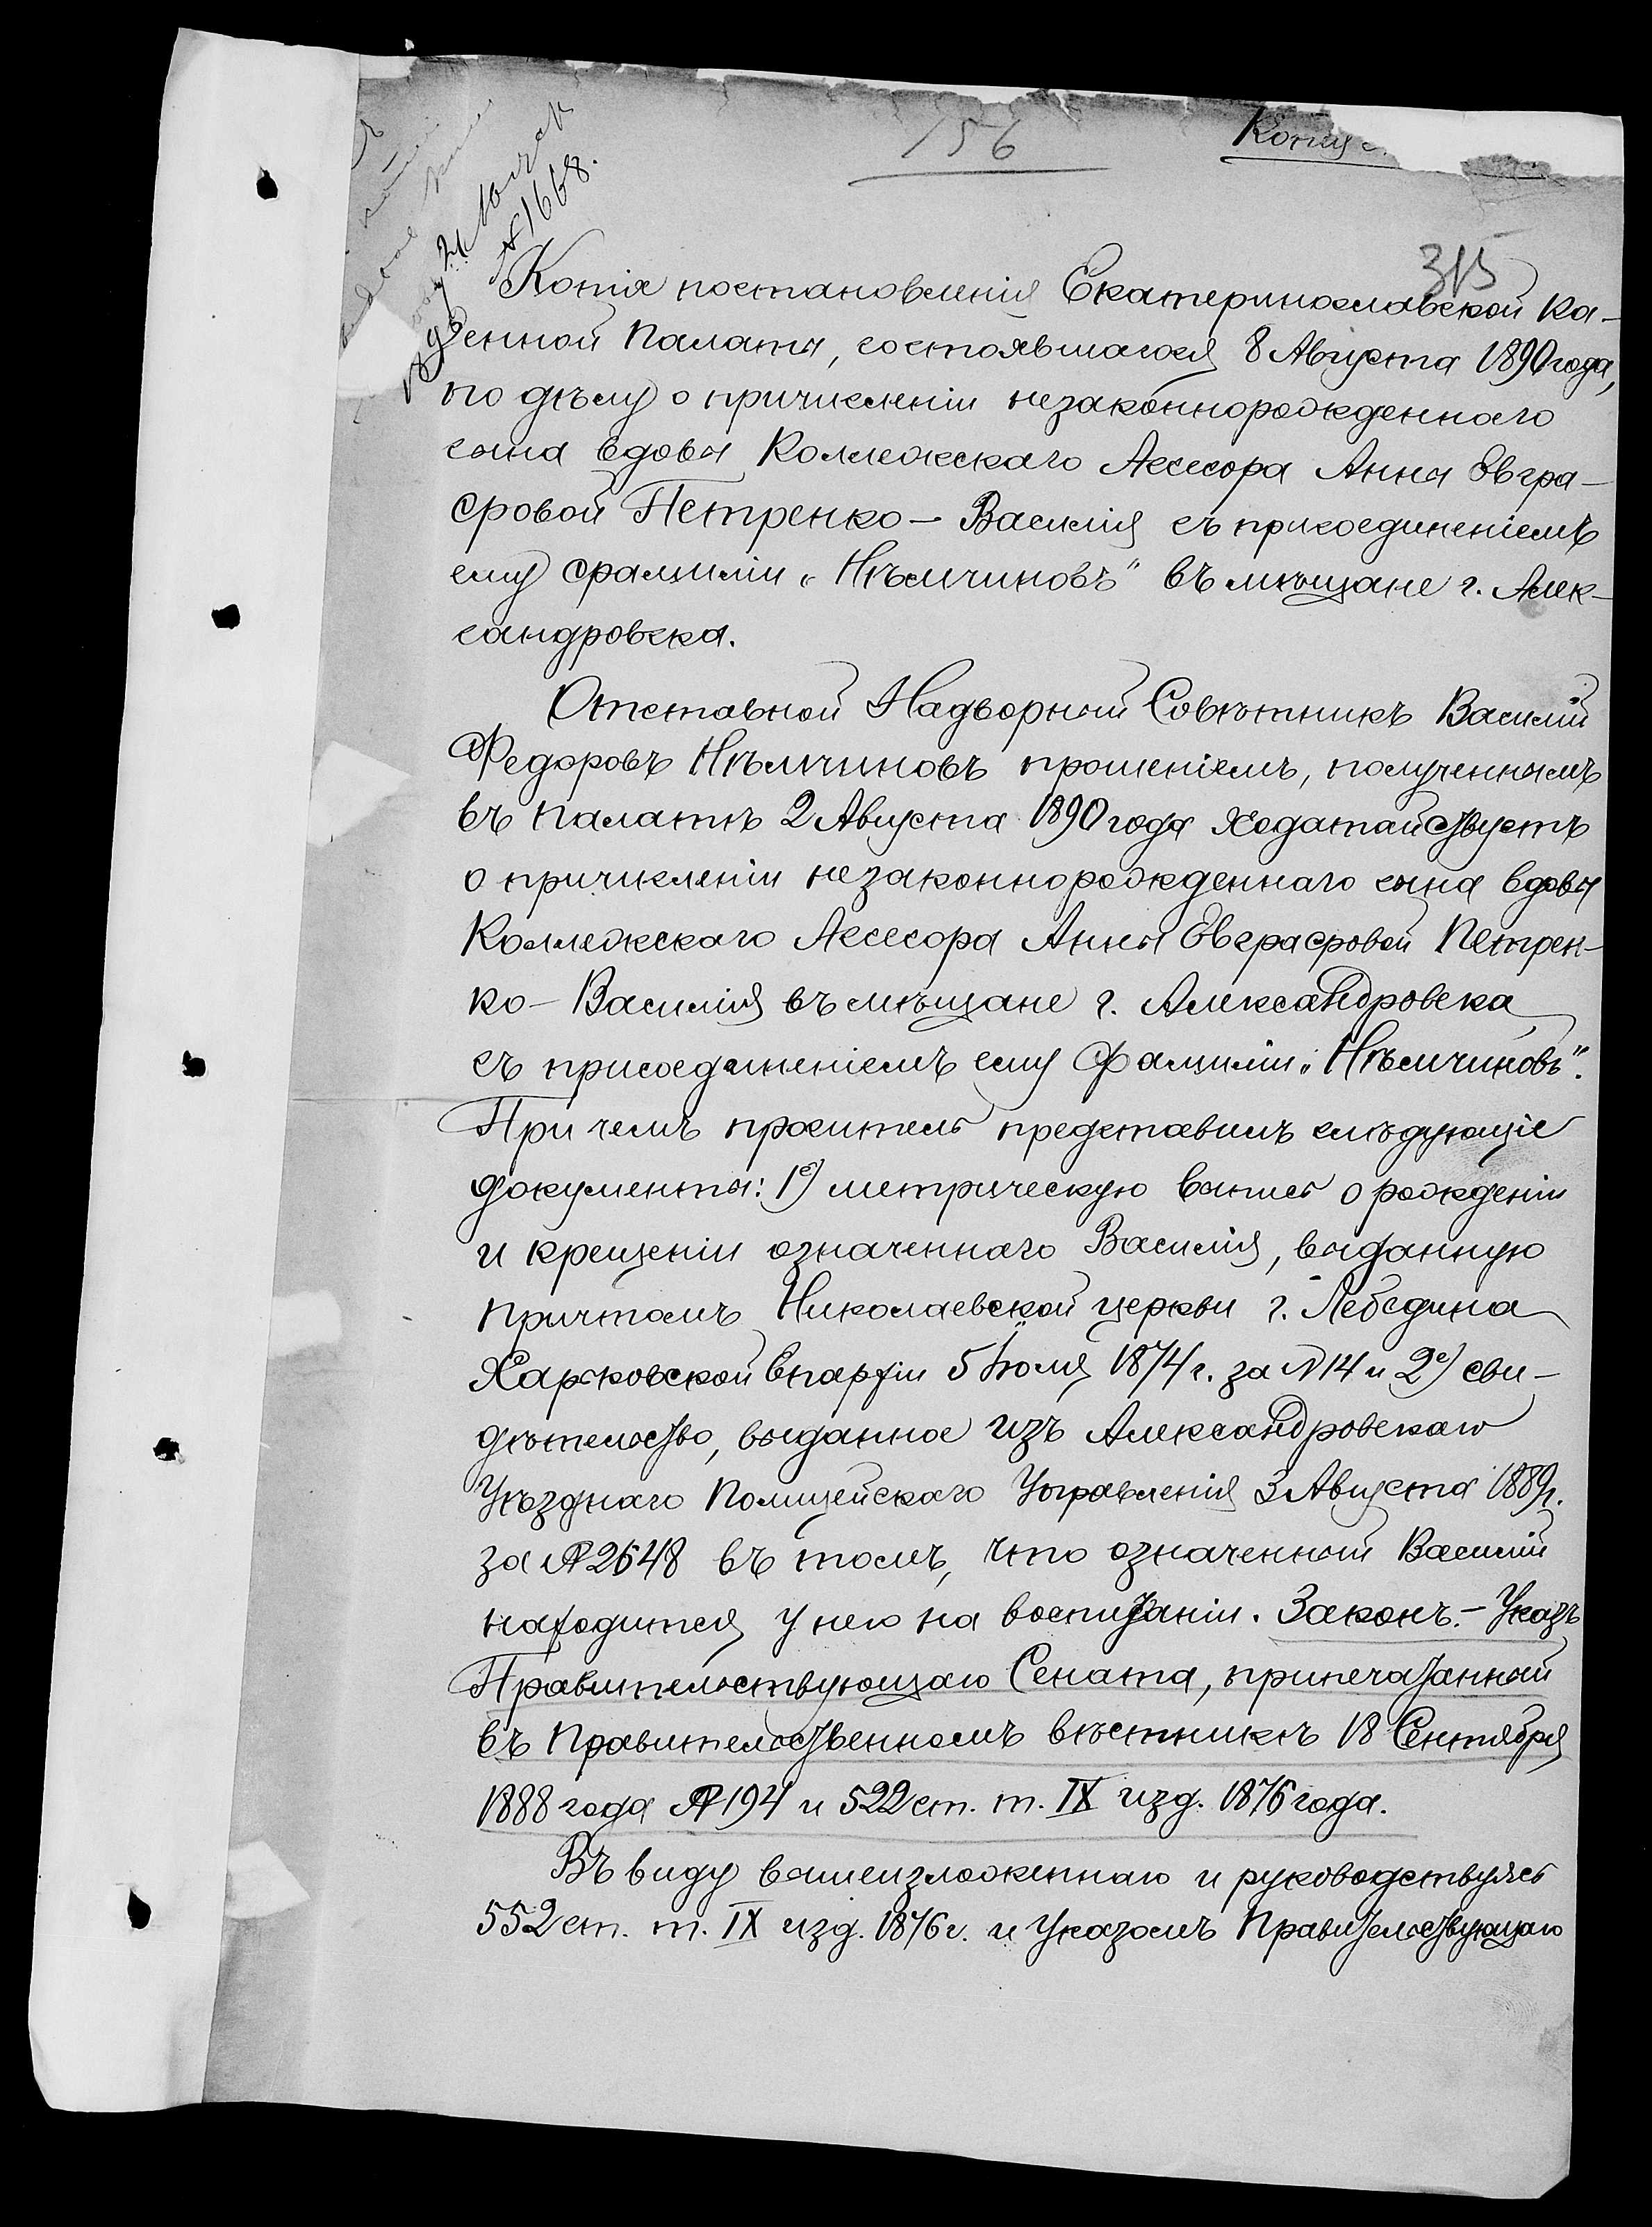 156
Копія
№ 1668.
315
Копія постановленія Екатеринославской Ка-
зенной Палаты, состоявшагося 8 Августа 1890 года,
по дѣлу о причисленіи незаконнорожденнаго
сына вдовы Коллежскаго Ассесора Анны Евгра-
фовой Петренко – Василія съ присоединеніемъ
ему фамиліи „Нѣмчиновъ" въ мѣщане г. Алек-
сандровска.
Отставной Надворный Совѣтникъ Василій
Федоровъ Нѣмчиновъ прошеніемъ, полученнымъ
въ Палатѣ 2 Августа 1890 года ходатайствуетъ
о причисленіи незаконнорожденнаго сына вдовы
Коллежскаго Ассесора Анны Евграфовой Петрен-
ко – Василія въ мѣщане г. Александровска
съ присоединеніемъ ему фамиліи „Нѣмчиновъ".
При чемъ проситель представилъ слѣдующіе
документы: 1е) метрическую выпись о рожденіи
и крещеніи означеннаго Василія, выданную
причтомъ Николаевской церкви г. Лебедина
Харьковской Епархіи 5 Іюля 1874 г. за № 14 и 2е) сви-
дѣтельство, выданное изъ Александровскаго
Уѣзднаго Полицейскаго Управленія 3 Августа 1889 г.
за № 2648 въ томъ, что означенный Василій
находится у него на воспитаніи. Законъ. – Указъ
Правительствующаго Сената, припечатанный
въ Правительственномъ вѣстникѣ 18 Сентября
1888 года № 194 и 522 ст. т. IX изд. 1876 года.
Въ виду вышеизложеннаго и руководствуясь
552 ст. т. IX изд. 1876 г. и Указомъ Правительствующаго